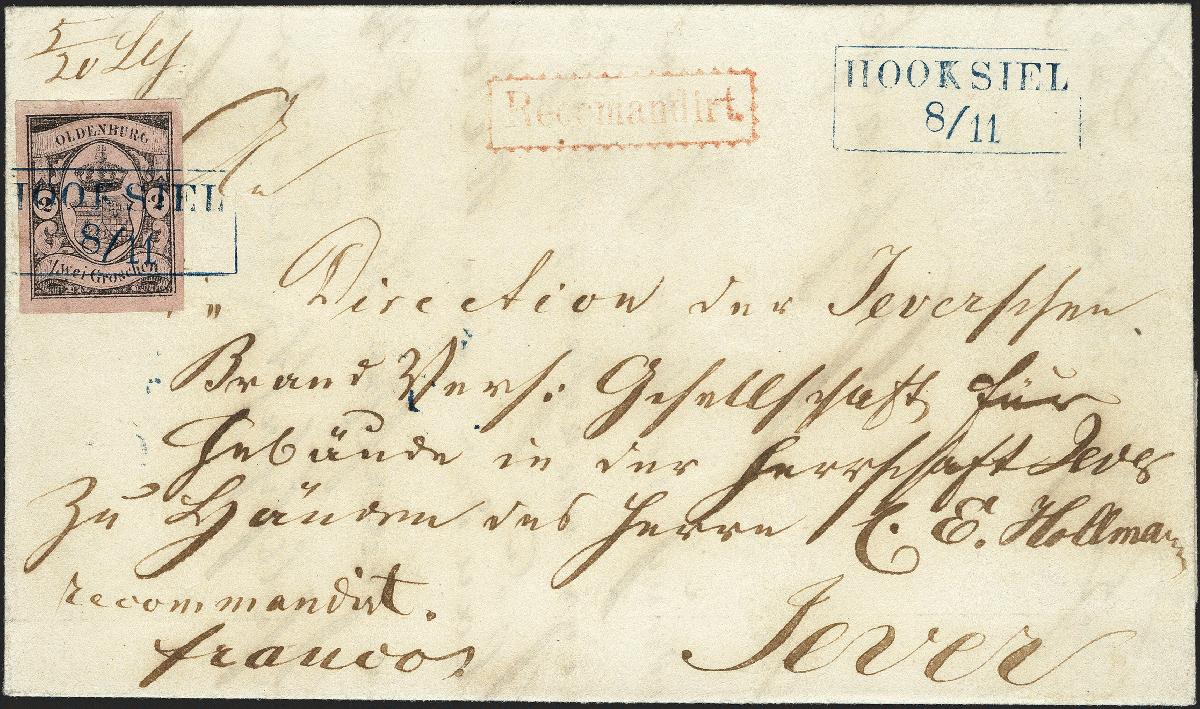 5/20
Recomandirt.
HOOKSIEL
8/11
OLDENBURG
HOOKSIEL
2 2
8/11
Zwei Groschen
An
Direction der Jeverschen
Brand Vers: Gesellschaft für
Gebäude in der Herrschaft Jever
Zu Händen des Herrn C. E. Hollmann
recommandirt.
franco.
Jever